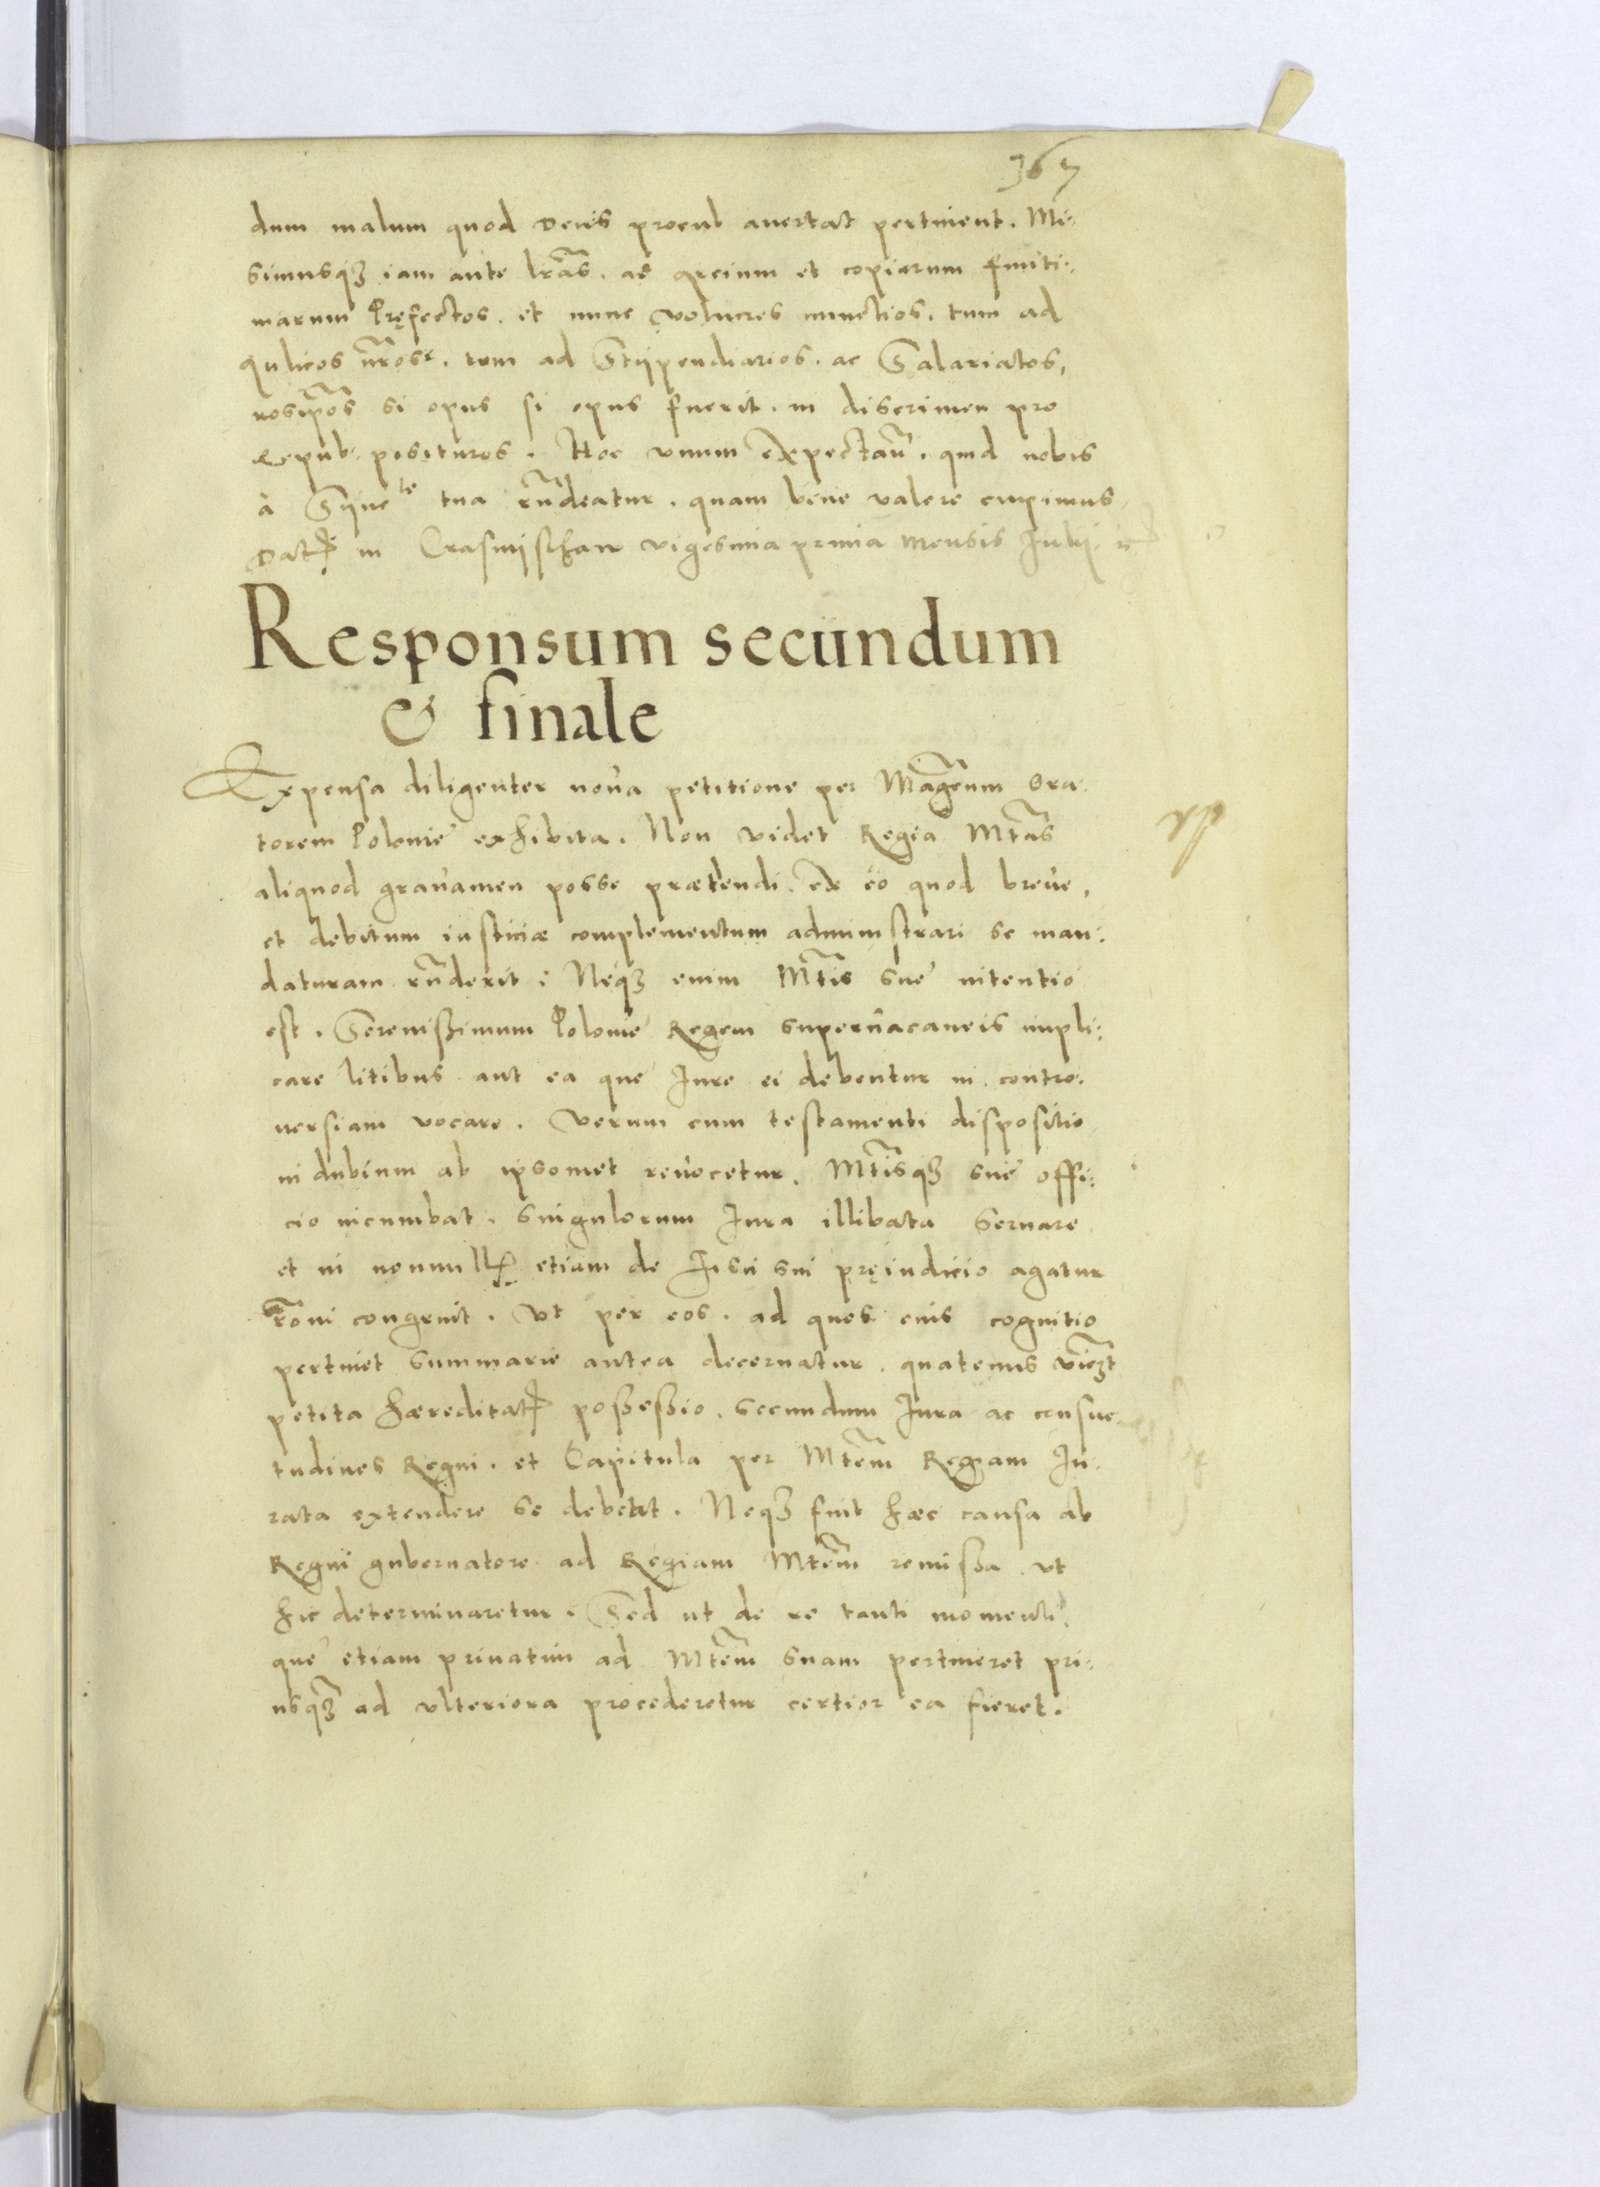 367
dum malum quod Deus procul avertat pertinent. Mi:
simusqȝ iam ante lr̃as. ac arcium et copiarum finiti:
marum Pręfectos. et nunc volucres nunctios. tum ad
Aulicos nr̃os. tum ad Stipendiarios. ac Salariatos,
nosip̃os si opus si opus fuerit. in discrimen pro
Repub. posituros. Hoc unum expectam̃. quid nobis
à Synte tua rñdeatur. quam bene valere cupimus.
Dat in Crasnijschaw vigesima prima mensis Julij.
Responsum secundum
& finale
Expensa diligenter nova petitione per Magcum Ora
torem Polonie exhibita. Non videt Regia Mtas
aliquod gravamen posse prætendi. ex eo quod breve,
et debitum iusticiæ complementum administrari se man:
daturam rñderit. Neqȝ enim Mtis sue intentio
est. Serenissimum Polonie Regem supervacaneis impli:
care litibus aut ea que Jure ei debentur in contro:
versiam vocare. Verum cum testamenti dispositio
in dubium ab ipsomet revocetur. Mtisqȝ sue offi:
cio incumbat. singulorum Jura illibata servare
et in nonnull etiam de Fisci sui pręiudicio agatur
r̃oni congruit. Vt per eos. ad quos eius cognitio
pertinet summarie antea decernatur. quatenus
petita hæreditat possessio. secundum Jura ac consue
tudines Regni. et Capitula per Mtem Regiam Ju
rata extendere se debeat. Neqȝ fuit hæc causa ab
Regni gubernatore ad Regiam Mtem remissa. ut
hic determinaretur. Sed ut de re tanti momenti
que etiam privatim ad Mtem suam pertineret pri:
usqȝ ad ulteriora procederetur certior ea fieret.